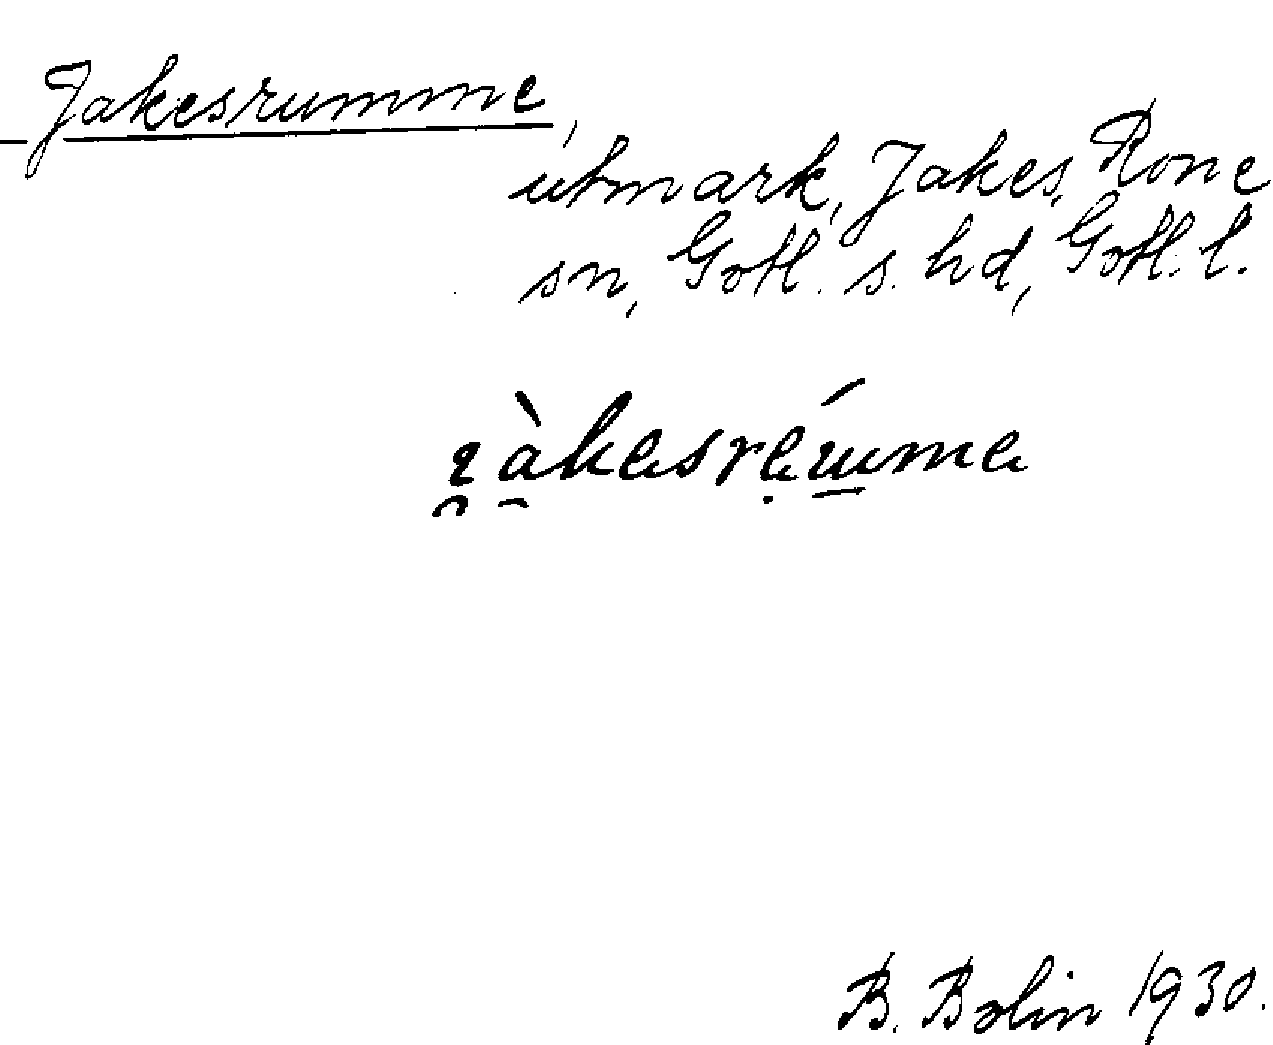 Jakesrumme,
utmark, Jakes, Rone
sn, Gotl. s. hd, Gotl. l.
B. Bolin 1930.